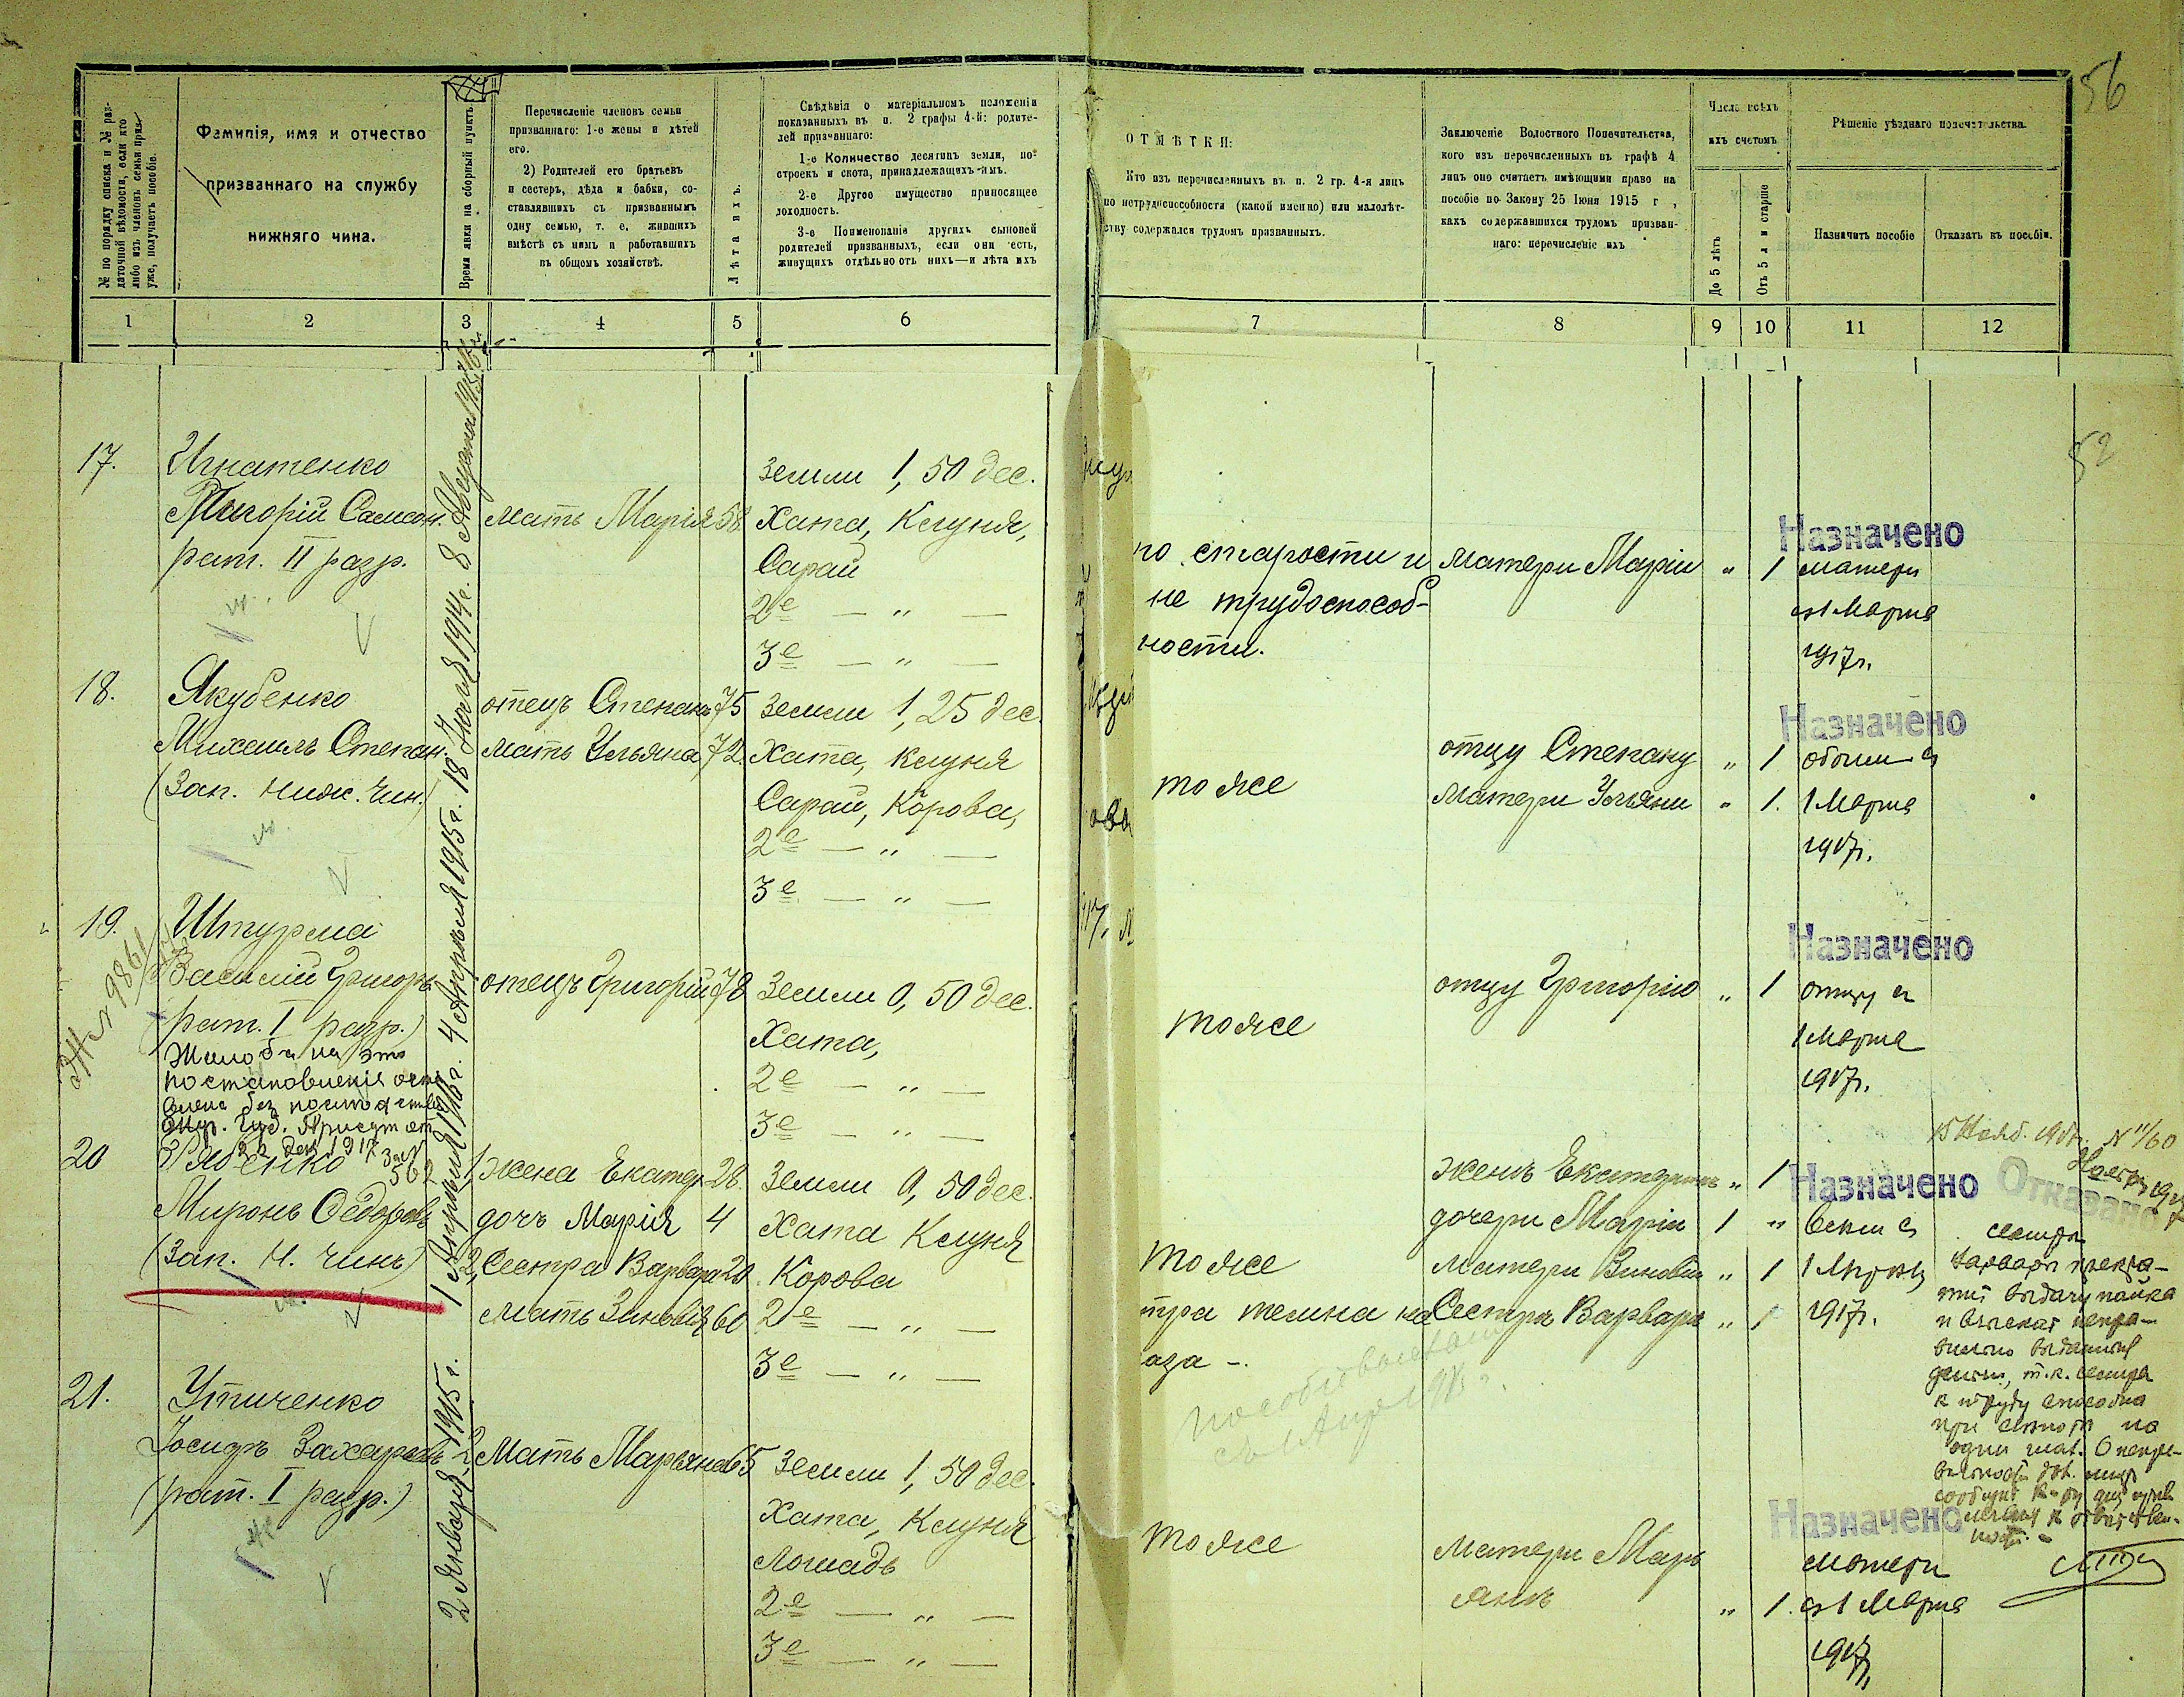 56
№ по порядку списка и № раз-
даточной вѣдомости, если кто
либо изъ членовъ семьи приз.
уже, получаетъ пособіе.
Фамилія, имя и отчество
призваннаго на службу
нижняго чина.
Время явки на сборный пунктъ.
Перечисленіе членовъ семьи
призваннаго: 1-е жены и дѣтей
его.
2) Родителей его братьевъ
и сестеръ, дѣда и бабки, со-
ставлявшихъ съ призваннымъ
одну семью, т. е. жившихъ
вмѣстѣ съ нимъ и работавшихъ
въ общемъ хозяйствѣ.
Лѣта ихъ.
Свѣдѣнія о матеріальномъ положеніи
показанныхъ въ п. 2 графы 4-й: родите-
лей призваннаго:
1-е Количество десятинъ земли, по-
строекъ и скота, принадлежащихъ имъ.
2-е Другое имущество приносящее
доходность.
3-е Поименованіе другихъ сыновей
родителей призванныхъ, если они есть,
живущихъ отдѣльно отъ нихъ—и лѣта ихъ
ОТМѢТКИ:
Кто изъ перечисленныхъ въ п. 2 гр. 4-я лицъ
по нетрудоспособности (какой именно) или малолѣт-
ству содержался трудомъ призванныхъ.
Заключеніе Волостного Попечительства,
кого изъ перечисленныхъ въ графѣ 4
лицъ оно считаетъ имѣющими право на
пособіе по Закону 25 Іюня 1915 г ,
какъ содержавшихся трудомъ призван-
наго: перечисленіе ихъ
Число всѣхъ
ихъ счетомъ
До 5 лѣтъ
Отъ 5 л и старше
Рѣшеніе уѣзднаго попечительства.
Назначить пособіе
Отказать въ пособіи.
1 2 3 4 5 6 7 8 9 10 11 12
52
17. Игнатенко
Григорій Самсон.
рат. II разр.
8 Августа
мать Марія 58
Земли 1,50 дес.
Хата, Клуня,
Сарай
2е — " —
3е — " —
по старости и
не трудоспособ-
ности.
матери Маріи " 1
Назначено
матери
съ 1 Марта
1917г.
18. Якубенко
Михаилъ Степан.
(Зап. ниж. чин.)
18 Іюля 1914г.
отецъ Степанъ 75
мать Ульяна 72.
Земли 1,25 дес.
Хата, Клуня
Сарай, Корова,
2е — " —
3е — " —
тоже
отцу Степану " 1
матери Ульяни " 1.
Назначено
обоим съ
1 Марта
1917г.
19. Штурма
Василій Григорь
(рат. I разр.)
Жалоба на это
постановленія остав
лена без послѣдствій
4 Апреля 1915г.
отецъ Григорій 78
Земли 0,50 дес.
Хата,
2е — " —
3е — " —
тоже
отцу Григорію " 1
Назначено
отцу съ
1 Марта
1917г.
20 Рябенко
Миронъ Ѳедоровъ
(Зап. Н. чинъ)
1 Апреля 1916г.
1, жена Екатер 28.
дочь Марія 4
2, Сестра Варвара 20
Мать Зиновія 60
Земли 0,50 дес.
Хата Клуня
Корова
2е — " —
3е — " —
тоже
женѣ Екатеринѣ " 1
дочери Маріи 1 "
матери Зиновіи " 1
Сестрѣ Варварѣ " 1
Назначено
всѣм съ
1 Марта
1917г.
Отказано
сестрѣ
Варварѣ прекра-
тить выдачу пайка
и взыскать непра-
вильно выданныя
деньги, т.к. сестра
к труду способна
21. Утиченко
Іосифъ Захаровъ
(рат. I разр.)
2 Января 1915г.
2, Мать Марьяна 65
Земли 1,50 дес.
Хата, Клуня
Лошадь
2е — " —
3е — " —
тоже
матери Марь
янѣ " 1.
Назначено
матери
съ 1 Марта
1917г.